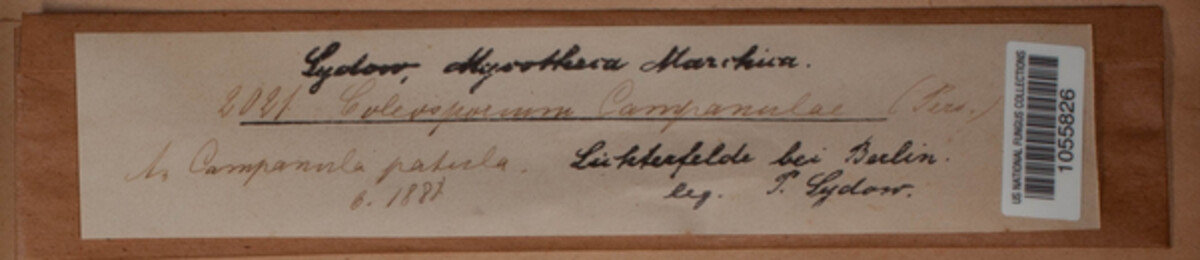 Sydow, Mycotheca Marchica.
2021 Coleosporium Campanulae (Pers.)
A. Campanula patula.
6. 188
Lichterfelde bei Berlin.
leg. P. Sydow.
US NATIONAL FUNGUS COLLECTIONS
1055826